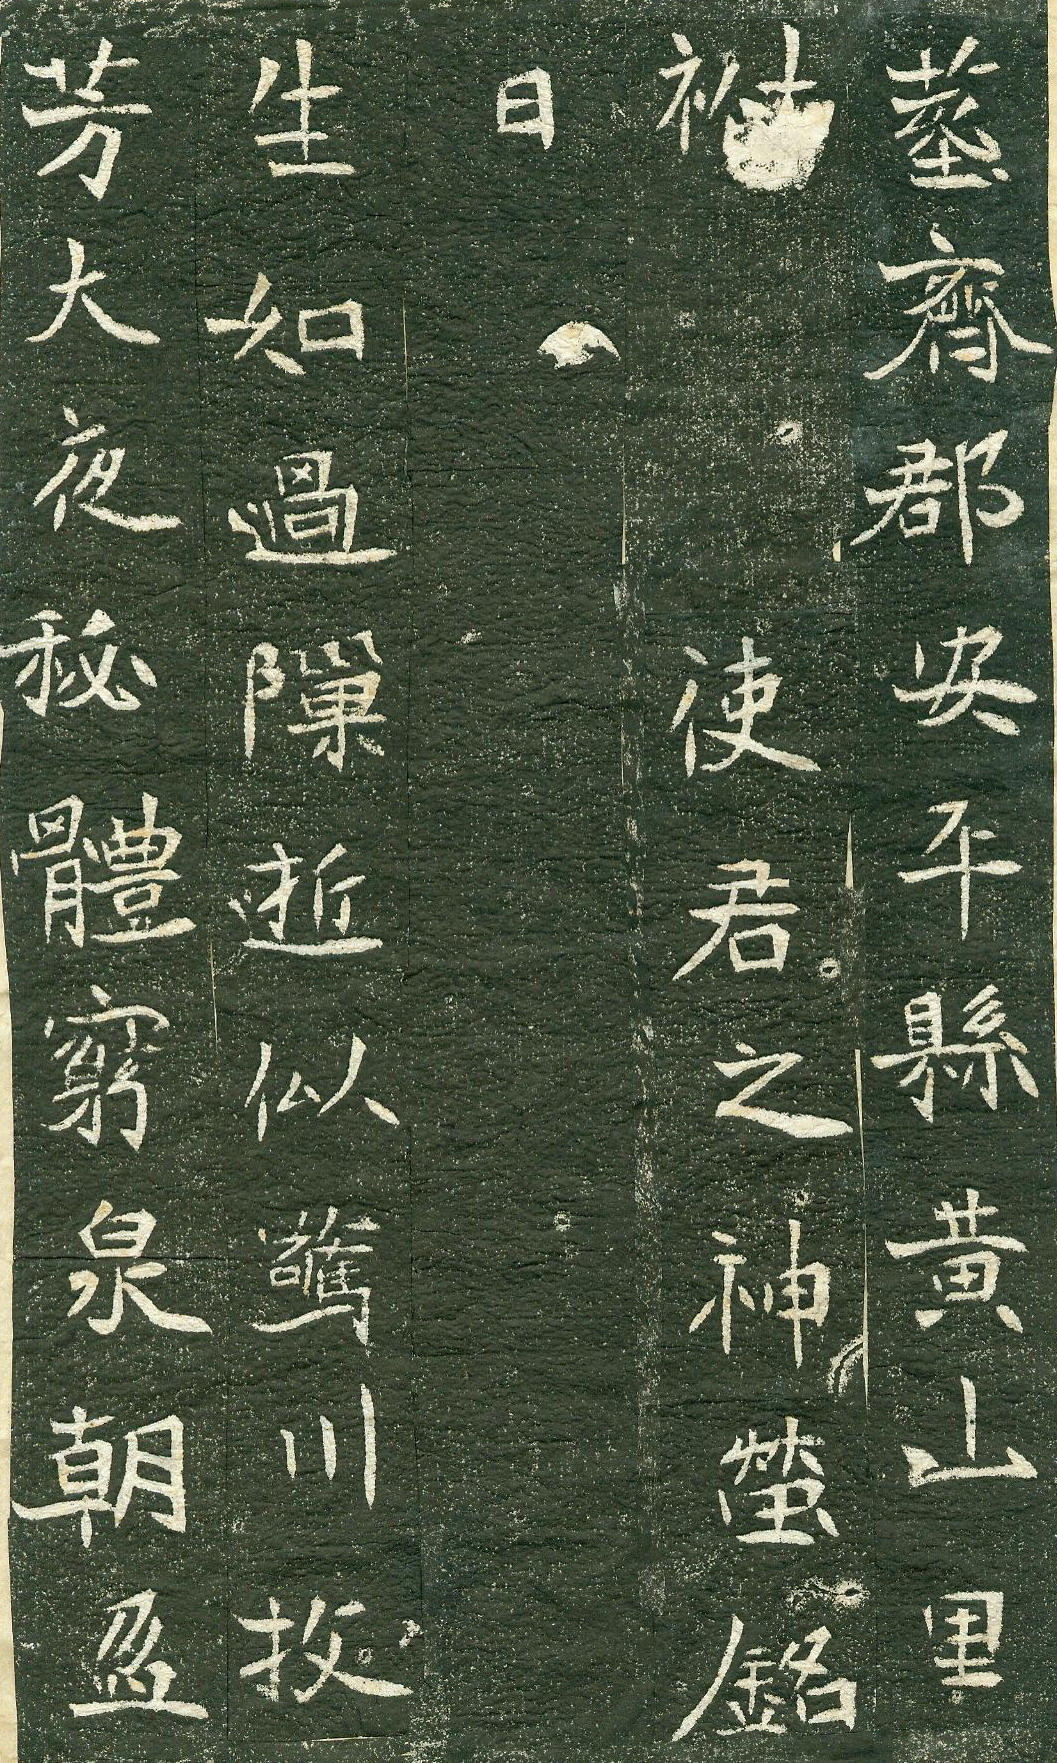 塟齊郡安平縣黃山里
祔使君之神塋銘
曰
生如過隟逝似驚川投
芳大夜秘體窮泉朝盈